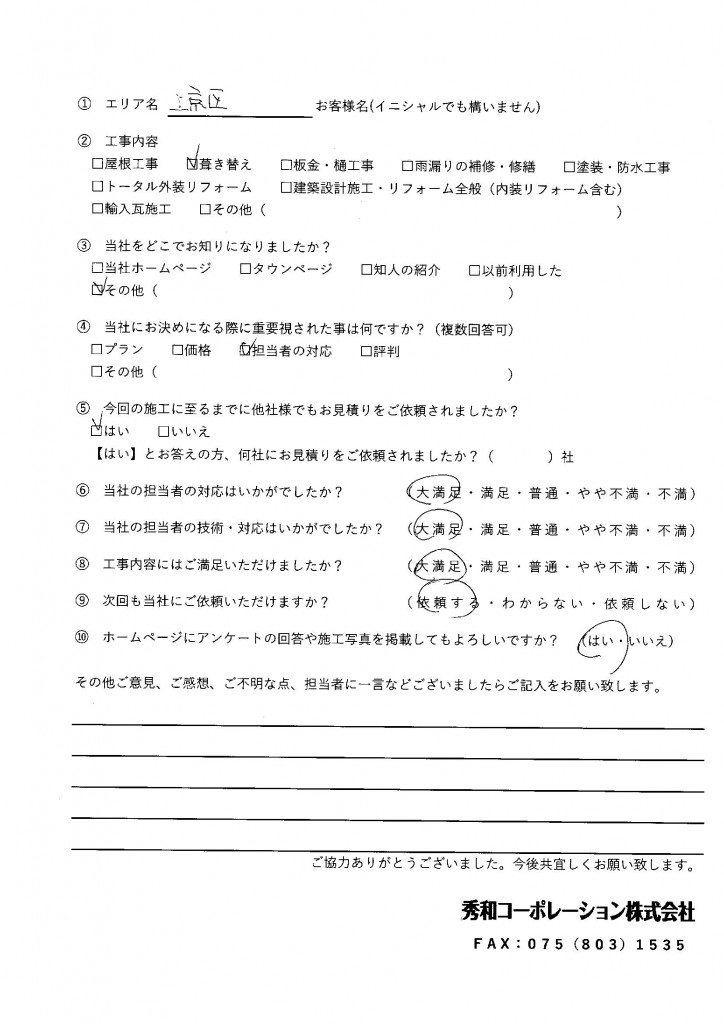 ① エリア名 京区 お客様名(イニシャルでも構いません)
② 工事内容
□屋根工事 ☑葺き替え □板金・樋工事 □雨漏りの補修・修繕 □塗装・防水工事
□トータル外装リフォーム □建築設計施工・リフォーム全般（内装リフォーム含む）
□輸入瓦施工 □その他（ ）
③ 当社をどこでお知りになりましたか？
□当社ホームページ □タウンページ □知人の紹介 □以前利用した
☑その他（ ）
④ 当社にお決めになる際に重要視された事は何ですか？（複数回答可）
□プラン □価格 ☑担当者の対応 □評判
□その他（ ）
⑤ 今回の施工に至るまでに他社様でもお見積りをご依頼されましたか？
☑はい □いいえ
【はい】とお答えの方、何社にお見積りをご依頼されましたか？（ ）社
⑥ 当社の担当者の対応はいかがでしたか？ （大満足・満足・普通・やや不満・不満）
⑦ 当社の担当者の技術・対応はいかがでしたか？ （大満足・満足・普通・やや不満・不満）
⑧ 工事内容にはご満足いただけましたか？ （大満足・満足・普通・やや不満・不満）
⑨ 次回も当社にご依頼いただけますか？ （依頼する・わからない・依頼しない）
⑩ ホームページにアンケートの回答や施工写真を掲載してもよろしいですか？ （はい・いいえ）
その他ご意見、ご感想、ご不明な点、担当者に一言などございましたらご記入をお願い致します。
ご協力ありがとうございました。今後共宜しくお願い致します。
秀和コーポレーション株式会社
FAX：075（803）1535